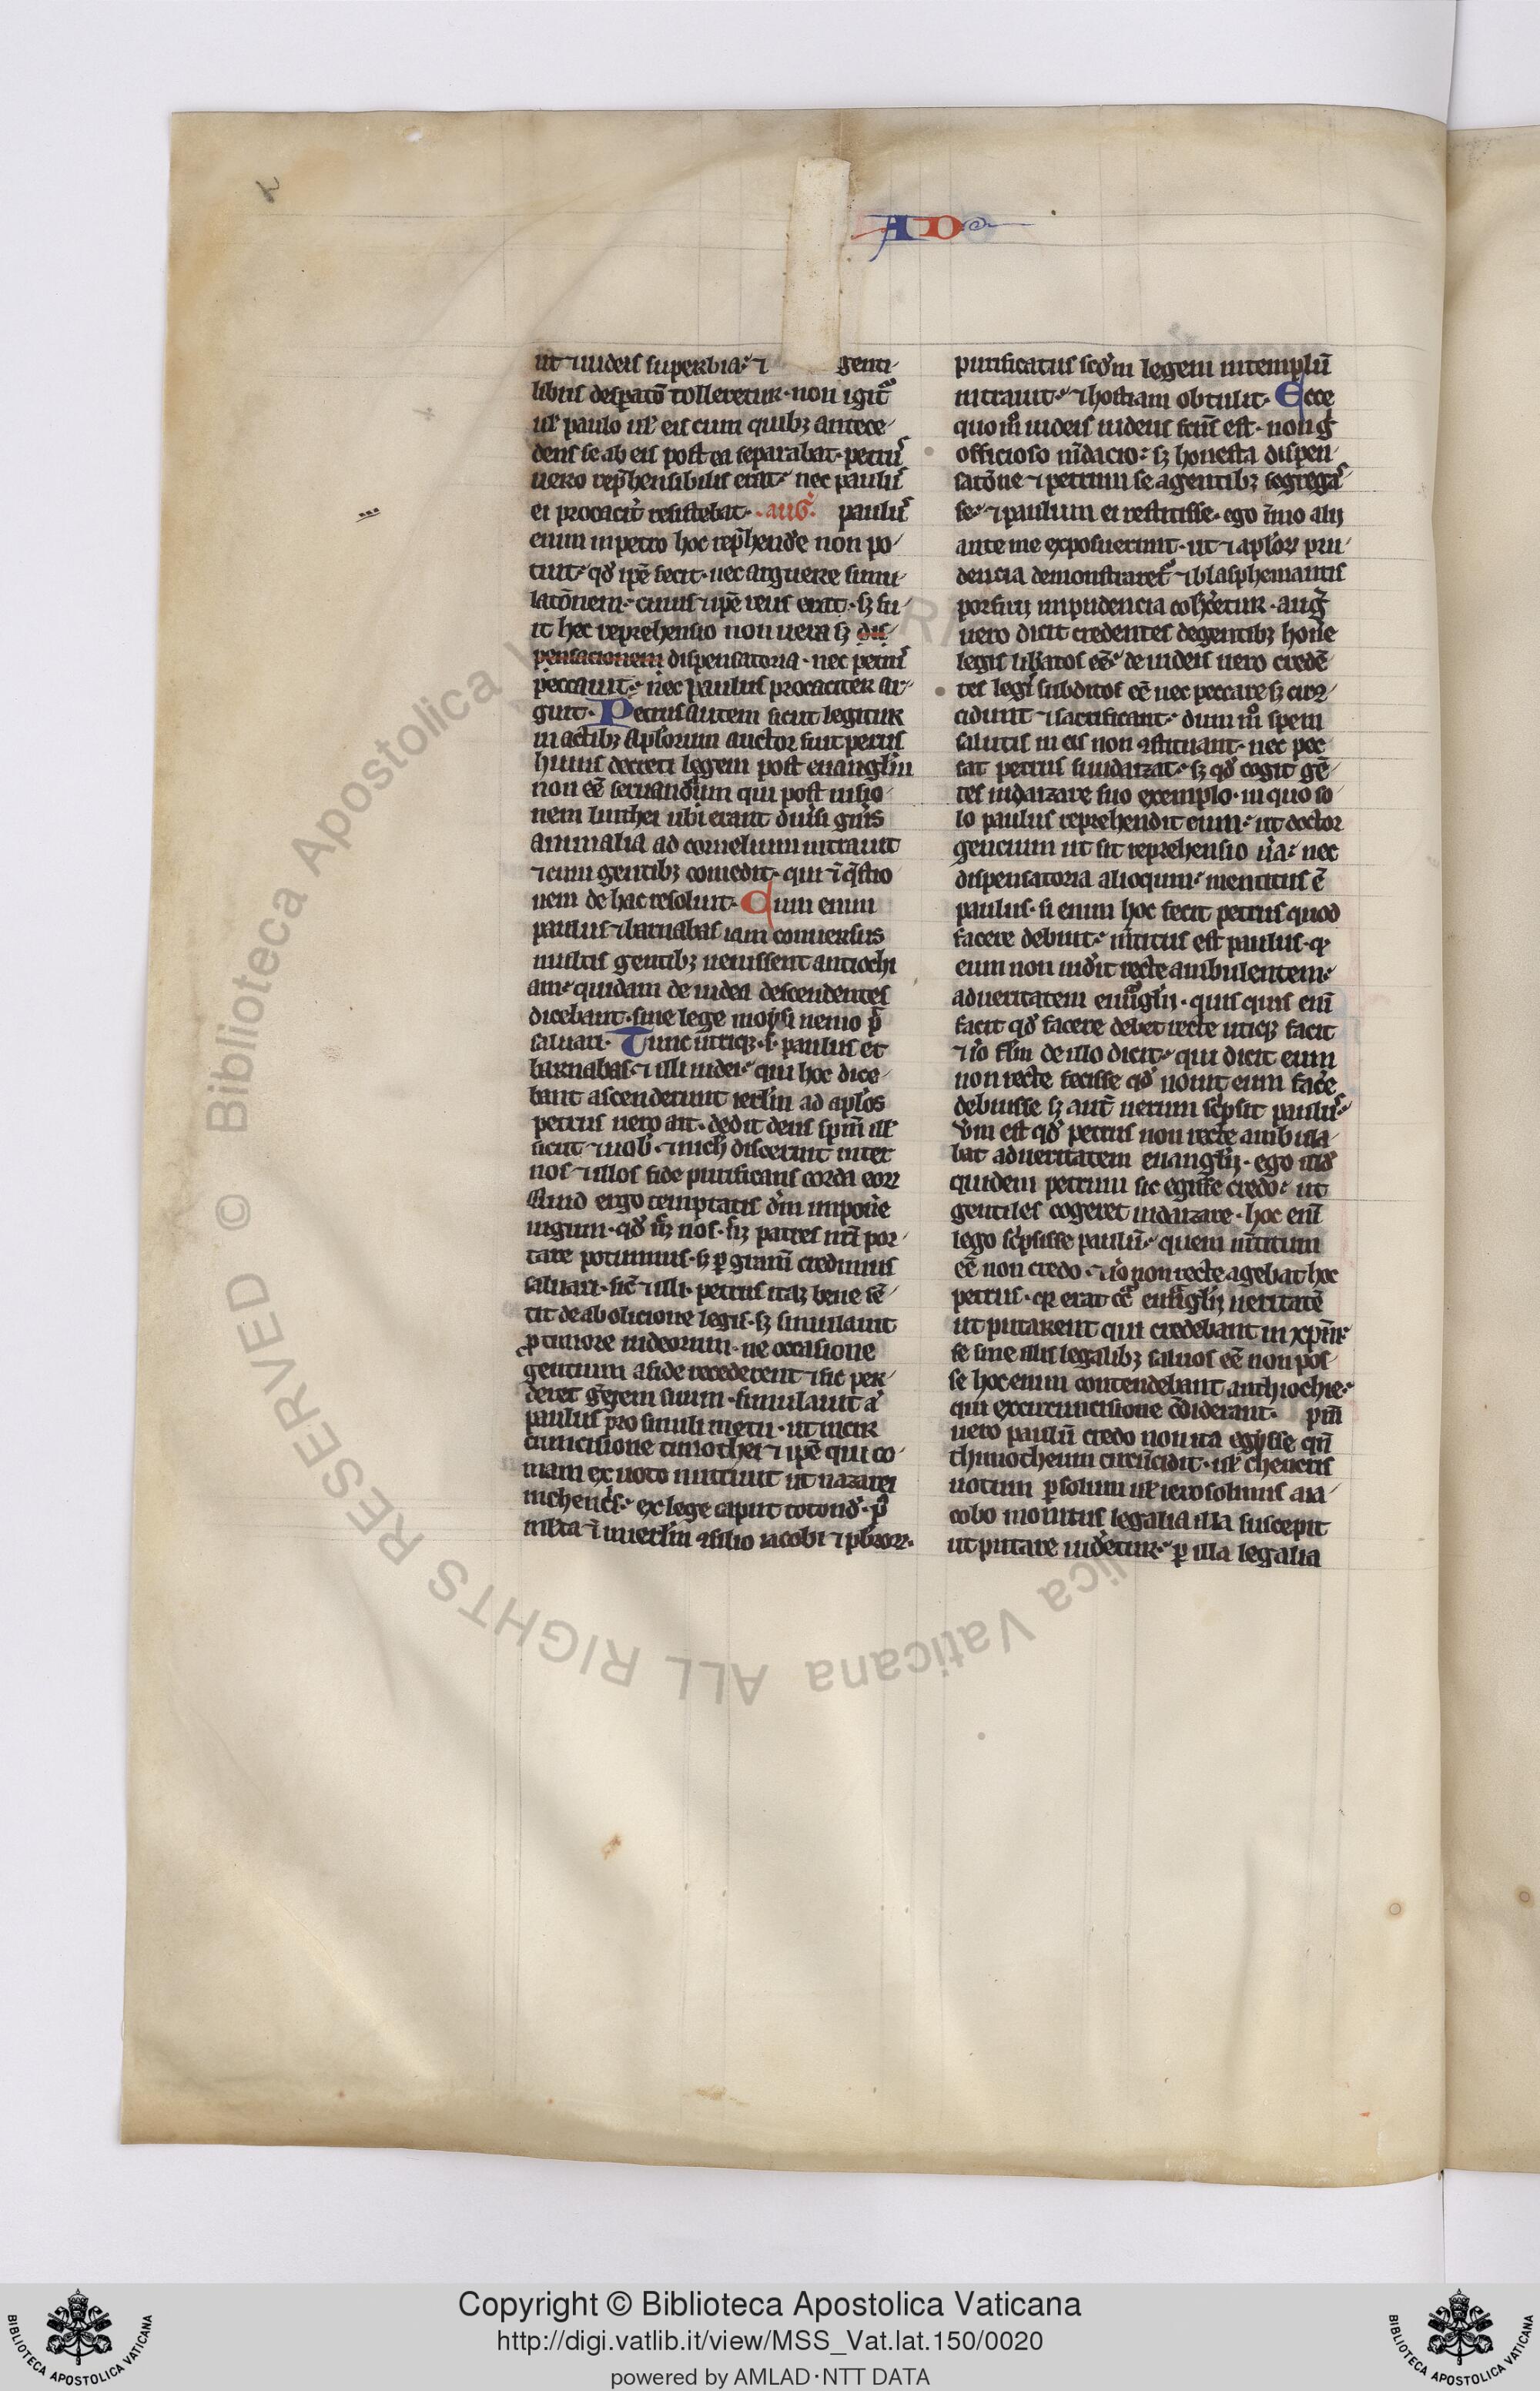 AD
ut ⁊ iudeis superbia ⁊ genti-
libus despatō tolleretur. non igit᷑
ul̄ paulo ul̄ eis cum quibꝫ antece-
dens se ab eis post ea separabat. petrus
uero rep̄hensibilis erat nec paulus
ei procacit̉ resistebat. aug̉. paulus
enim in petro hoc rep̄hend̉e non po-
tuit qd̉ ip̄e fecit. nec arguere simu-
latōnem cuius ⁊ ip̄e reus erat. sꝫ fu-
it hec reprehensio non uera sꝫ dis-
pensacionem dispensatoria. nec petrus
peccauit nec paulus procaciter ar-
guit. Petrus autem sicut legitur
in actibꝫ aplorum auctor fuit
huius decreti legem post euangl̄iu
non eē seruandum qui post uisio-
nem linthei ubi erant diủsi gn̉is
animalia ad cornelium intrauit
⁊ cum gentibꝫ comedit. qui ⁊ q̄stio
nem de hac resoluit. Cum enim
paulus ⁊ barnabas iam conuersis
multis gentibꝫ uenissent antiochi
am quidam de iudea descendentes
dicebant. sine lege moysi nemo p̄t
saluari. Tunc utriqꝫ .s. paulus et
barnabas ⁊ illi iudei qui hoc dice-
bant ascenderunt ierl̄m ad apl̉os
petrus uero ait. dedit deus sp̄m ill̉
sicut ⁊ uob̉. ⁊ nich̉ discernit inter
nos ⁊ illos fide purificans corda eoꝝ
Quid ergo temptatis dm̄ impon̉e
iugum. qd̉ nos patres nr̄i por-
tare potuimus. sꝫ ꝑ gratiā credimus
saluari. sic̄ ⁊ illi. petrus itaꝫ bene sē-
tit de abolicione legis. sꝫ simulauit
ꝓ timore iudeorum. ne occasione
gentium a fide recederent ⁊ sic per-
deret gregem suum. simulauit
paulus pro simili metu. ut in cir
cumcisione timothei ⁊ ip̄e qui co-
mam ex uoto nutriuit ut nazarei
in chencris ex lege caput totond̉.
ierl̄m ꝯsilio iacobi ⁊
purificatus scd̉m legem in templū
intrauit ⁊ hostiam obtulit. Ecce
quo iudeis iudeus est. non g̉
officioso mendacio sꝫ honesta dispen-
satōne ⁊ petrum se a gentibꝫ segregas-
se ⁊ paulum ei restitisse. ego īmo alij
ante me exposuerunt. ut ⁊ apl̉oꝝ pru-
dencia demonstraret᷑ ⁊ blasphemantis
porfirij inpudencia coh̉cetur. aug̉
uero dicit credentes de gentibꝫ hon̉e
legis lib̉atos eē de iudeis uero credē-
tes legi subditos eē nec peccare si circū
cidunt ⁊ sacrificant dum m̊ spem
salutis in eis non ꝯstituant. nec pec
cat petrus si iudaizat sꝫ qd̉ cogit gē-
tes iudaizare suo exemplo. in quo so-
lo paulus reprehendit eum ut doctor
gencium ut sit reprehensio ủa nec
dispensatoria alioquin mentitus ē
paulus. si enim hoc fecit petrus quod
facere debuit m̄titus est paulus. q̉
eum non uid̉it recte ambulentem
ad ueritatem euāgl̉ij. quis quis enī
facit qd̉ facere debet recte utiqꝫ facit
⁊ io̊ fl̄m de illo dicit qui dicit eum
non recte fecisse qd̉ nouit eum fac̉e
debuisse sꝫ aut̄ uerum sc̉psit paulus
ủm est qd̉ petrus non recte ambula-
bat ad ueritatem euangl̉ij. ego illd̉
quidem petrum sic egisse credo ut
gentiles cogeret iudaizare. hoc enī
lego sc̉psisse paulū quem m̄titum
eē non credo. ⁊ io̊ non recte agebat hoc
petrus. q̉ erat ꝯ̉ euāgl̉ij ueritatē
ut putarent qui credebant in xp̄m
se sine illis legalibꝫ saluos eē non pos-
se hoc enim contendebant anthiochie
qui ex circumcisione c̄diderant. p̄m̄
uero paulū credo non ita egisse qn̄
thimotheum circūcidit. ul̄ chencris
uotum ꝑsoluit ul̄ ierosolimis a ia-
cobo monitus legalia illa suscepit
ut putare uid̉etur ꝑ illa legalia
Copyright © Biblioteca Apostolica Vaticana
http://digi.vatlib.it/view/MSS_Vat.lat.150/0020
powered by AMLAD·NTT DATA